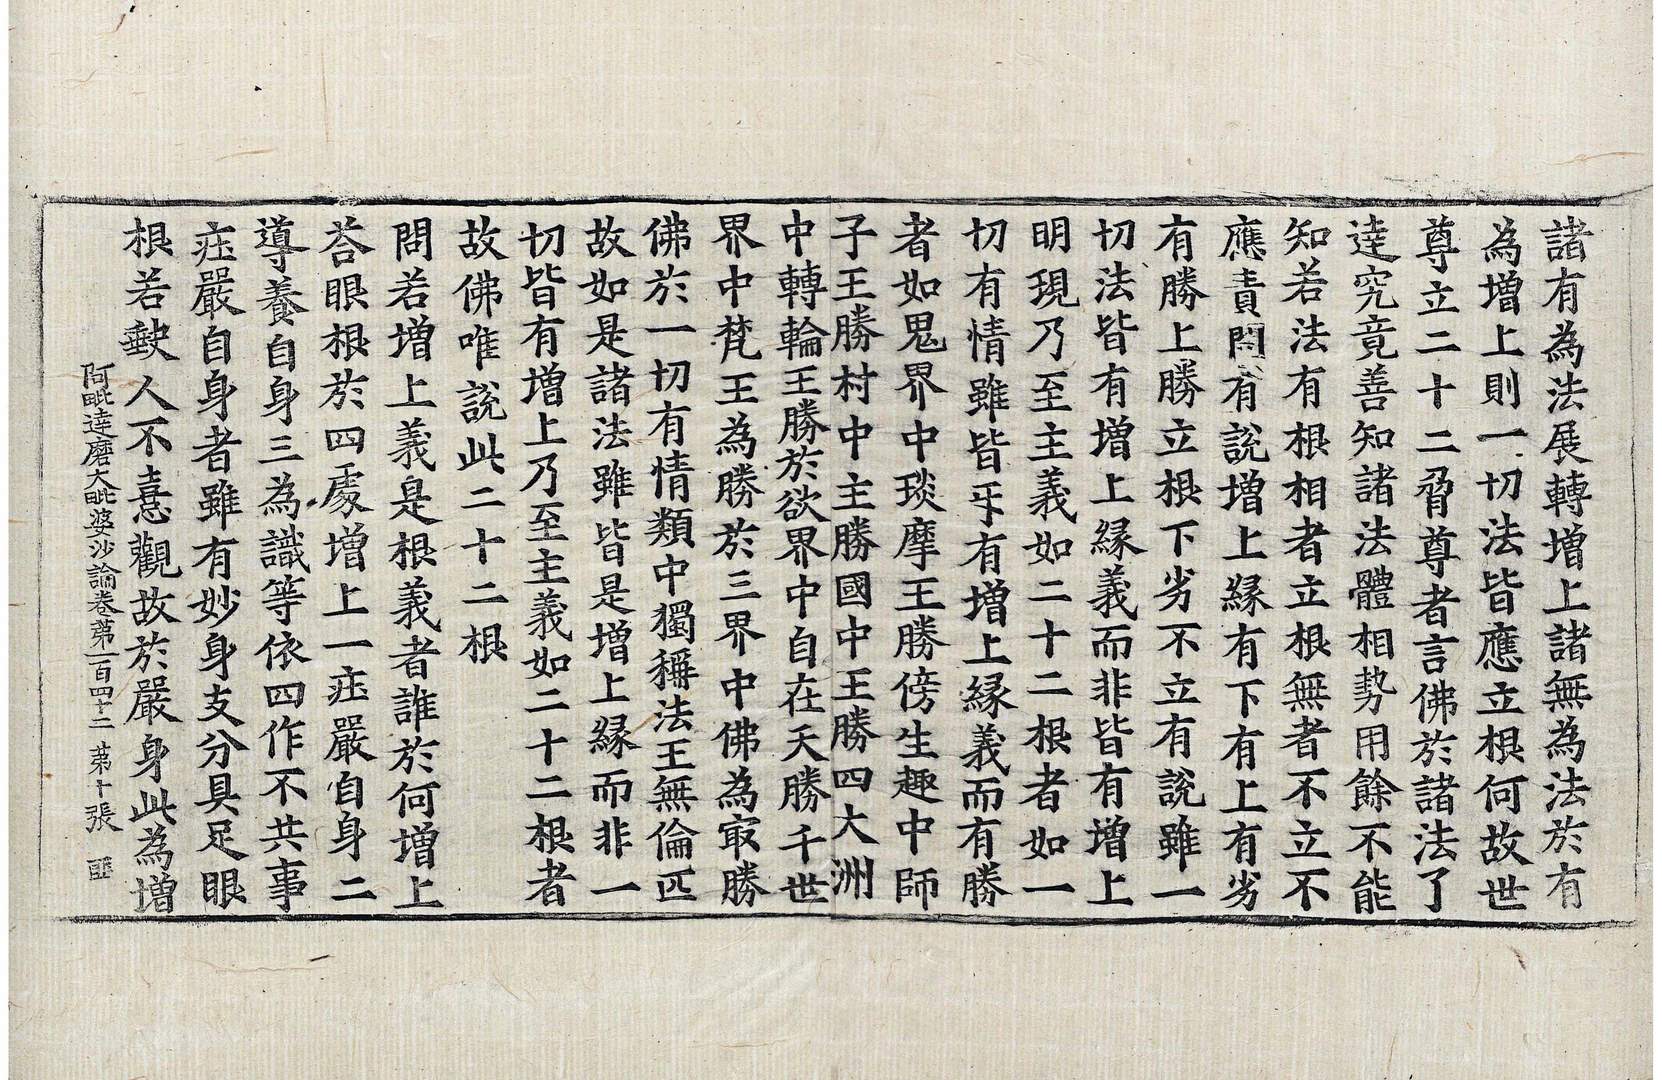 諸有為法展轉增上諸無為法於有
為增上則一切法皆應立根何故世
尊立二十二脅尊者言佛於諸法了
達究竟善知諸法體相勢用餘不能
知若法有根相者立根無者不立不
應責問有說增上緣有下有上有劣
有勝上勝立根下劣不立有說雖一
切法皆有增上緣義而非皆有增上
明現乃至主義如二十二根者如一
切有情雖皆㸦有增上緣義而有勝
者如鬼界中琰摩王勝傍生趣中師
子王勝村中主勝國中王勝四大洲
中轉輪王勝於欲界中自在天勝千世
界中梵王為勝於三界中佛為㝡勝
佛於一切有情類中獨稱法王無倫匹
故如是諸法雖皆是增上緣而非一
切皆有增上乃至主義如二十二根者
故佛唯說此二十二根
問若增上義是根義者誰於何增上
荅眼根於四處增上一莊嚴自身二
導養自身三為識等依四作不共事
莊嚴自身者雖有妙身支分具足眼
根若缺人不憙觀故於嚴身此為增
阿毗達磨大毗婆沙論卷苐一百四十二 苐十張 匪